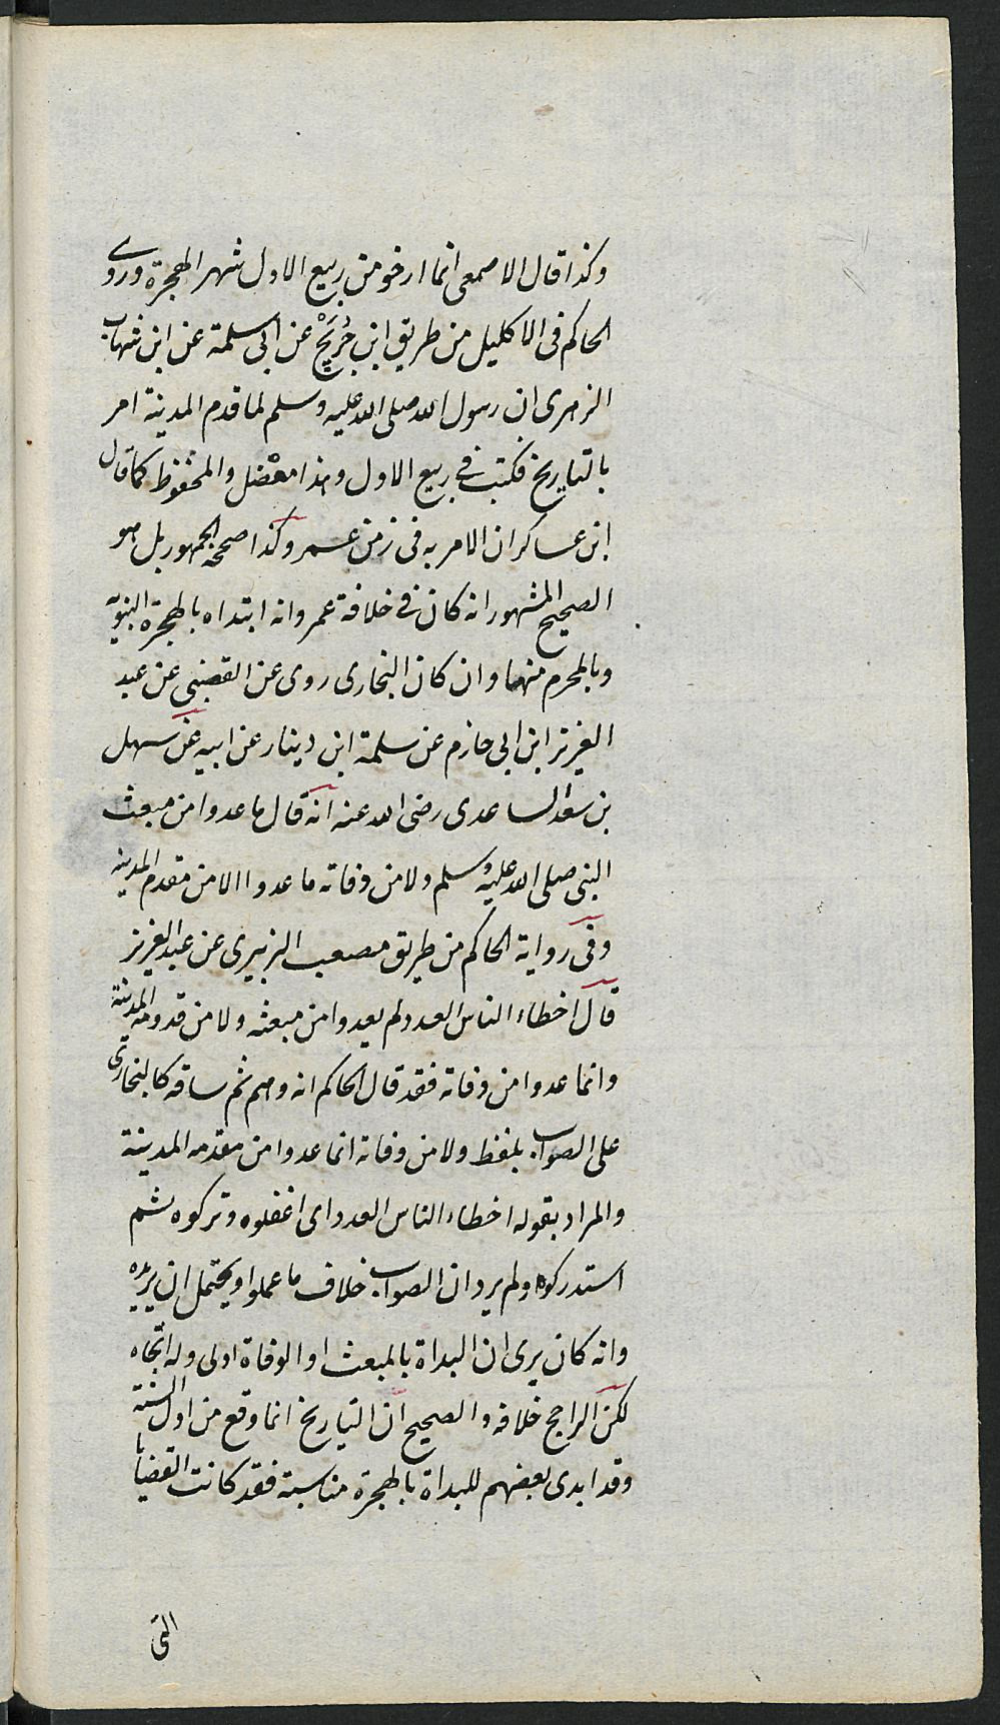 وكذا قال الاصمعى انما ارخو من ربيع الاول شهر الهجرة وروى
الحاكم فى الاكليل من طريق ابن جُرَيْج عن ابى سلمة عن ابن شهاب
الزهرى ان رسول الله صلى الله عليه وسلم لما قدم المدينة امر
بالتاريخ فكتب فى ربيع الاول وهذا معْضل والمحفوظ كما قال
ابن عساكر ان الامر به فى زمن عمر وكذا صححه الجمهور بل هو
الصحيح المشهور انه كان فى خلافة عمر وانه ابتداه بالهجرة النبويه
وبالمحرم منها وان كان البخارى روى عن القضبى عن عبد
العزيز ابن ابى حازم عن سلمة ابن دينار عن ابيه عن سهل
بن سعد الساعدى رضى الله عنه انه قال ما عدوا من مبعث
النبى صلى الله عليه وسلم ولا من وفاته ما عدوا الا من مقدم المدينه
وفى رواية الحاكم من طريق مصعب الزبيرى عن عبد العزيز
قال اخطاء الناس العدد لم يعدوا من مبعثه ولا من قدومه المدينة
وانما عدوا من وفاته فقد قال الحاكم انه وهم ثم ساقه كالبخارى
على الصواب بلفظ ولا من وفاته انما عدوا من مقدمه المدينة
والمراد بقوله اخطاء الناس العدد اى اغفلوه وتركوه ثم
استدركوه ولم يرد ان الصواب خلاف ما عملوا ويحتمل ان يريده
وانه كان يرى ان البداة بالمبعث او الوفاة اولى وله اتجاه
لكن الراجح خلافه والصحيح ان التاريخ انما وقع من اول السنة
وقد ابدى بعضهم للبداة بالهجرة مناسبة فقد كانت القضايا
التى